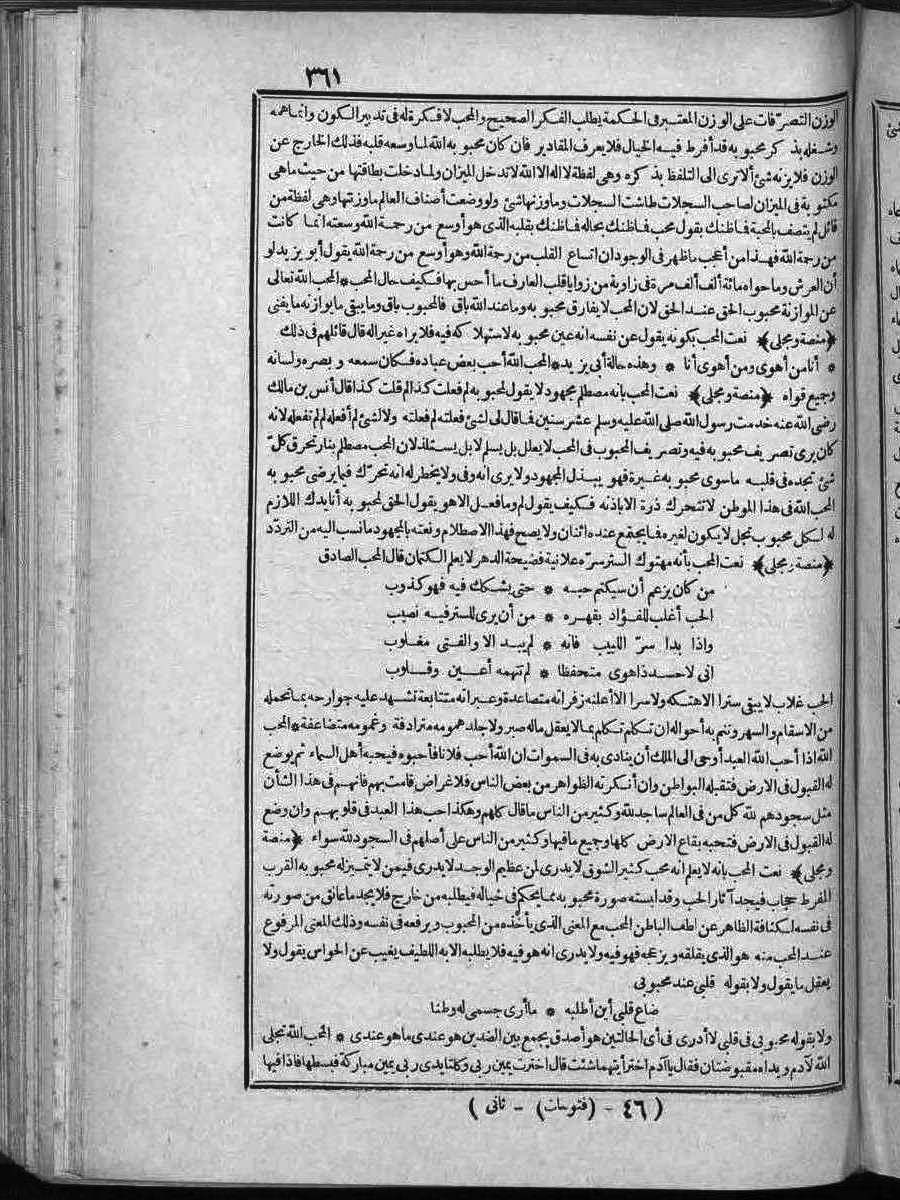 ٣٦١
الوزن التصرّفات على الوزن المعتبر فى الحكمة يطلب الفكر الصحيح والمحب لا فكرة له فى تدبير الكون وانما همه
وشغله بذكر محبوبه قد أفرط فيه الخيال فلا يعرف المقادير فان كان محبوبه الله لما وسعه قلبه فذلك الخارج عن
الوزن فلا يزنه شئ ألا ترى الى التلفظ بذكره وهى لفظة لا اله الا الله لا تدخل الميزان ولما دخلت بطاقتها من حيث ما هى
مكتوبة فى الميزان لصاحب السجلات طاشت السجلات وما وزنها شئ ولو وضعت أصناف العالم ما وزنتها وهى لفظة من
قائل لم يتصف بالمحبة فما ظنك بقول محب فما ظنك بحاله فما ظنك بقلبه الذى هو أوسع من رحمة الله وسعته انما كانت
من رحمة الله فهذا من أعجب ما ظهر فى الوجود ان اتساع القلب من رحمة الله وهو أوسع من رحمة الله يقول أبو يزيد لو
أن العرش وما حواه مائة ألف ألف مرة فى زاوية من زوايا قلب العارف ما أحس بها فكيف حال المحب * المحب الله تعالى
عن الموازنة محبوب الحق عند الحق لان المحب لا يفارق محبوبه وما عند الله باق فالمحبوب باق وما يبقى ما يوازنه ما يفنى
﴿منصة ومجلى﴾ نعت المحب بكونه يقول عن نفسه انه عين محبوبه لاستهلاكه فيه فلا يراه غيرا له قال قائلهم فى ذلك
* أنا من أهوى ومن أهوى أنا * وهذه حالة أبى يزيد * المحب الله أحب بعض عباده فكان سمعه وبصره ولسانه
وجميع قواه ﴿منصة ومجلى﴾ نعت المحب بانه مصطلم مجهود لا يقول لمحبوبه لم فعلت كذا لم قلت كذا قال أنس بن مالك
رضى الله عنه خدمت رسول الله صلى الله عليه وسلم عشر سنين فما قال لى لشئ فعلته لم فعلته ولا لشئ لم أفعله لم لم تفعله لانه
كان يرى تصريف محبوبه فيه وتصريف المحبوب فى المحب لا يعلل بل يسلم لا بل يستلذ لان المحب مصطلم بنار تحرق كلّ
شئ تجده فى قلبه ما سوى محبوبه غيرة فهو يبذل المجهود ولا يرى انه وفى ولا يخطر له انه تحرّك فيما يرضى محبوبه
المحب الله فى هذا الموطن لا تتحرك ذرة الا باذنه فكيف يقول لم وما فعل الا هو يقول الحق لمحبوبه أنا بدك اللازم
له لكل محبوب تجل لا يكون لغيره فما يجتمع عنده اثنان ولا يصح فهذا الاصطلام ونعته بالمجهود ما نسب اليه من التردّد
﴿منصة ومجلى﴾ نعت المحب بأنه مهتوك الستر سرّه علانية فضيحة الدهر لا يعلم الكتمان قال المحب الصادق
من كان يزعم أن سيكتم حبه * حتى يشكك فيه فهو كذوب
الحب أغلب للفؤاد بقهره * من أن يرى للستر فيه نصيب
واذا بدا سرّ اللبيب فانه * لم يبد الا والفتى مغلوب
انى لاحسد ذا هوى متحفظا * لم تتهمه أعين وقلوب
الحب غلاب لا يبقى سترا الا هتكه ولا سرا الا أعلنه زفراته متصاعدة وعبراته متتابعة تشهد عليه جوارحه بما تحمله
من الاسقام والسهر وتنم به أحواله ان تكلم تكلم بما لا يعقل ماله صبر ولا جلد همومه مترادفة وغمومه متضاعفة * المحب
الله اذا أحب الله العبد أوحى الى الملك أن ينادى به فى السموات ان الله أحب فلانا فأحبوه فيحبه أهل السماء ثم يوضع
له القبول فى الارض فتقبله البواطن وان أنكرته الظواهر من بعض الناس فلاغراض قامت بهم فانهم فى هذا الشأن
مثل سجودهم لله كل من فى العالم ساجد لله وكثير من الناس ما قال كلهم وهكذا حب هذا العبد فى قلوبهم وان وضع
له القبول فى الارض فتحبه بقاع الارض كلها وجميع ما فيها وكثير من الناس على أصلهم فى السجود لله سواء ﴿منصة
ومجلى﴾ نعت المحب بانه لا يعلم انه محب كثير الشوق لا يدرى لمن عظيم الوجد لا يدرى فيمن لا يتميز له محبوبه القرب
المفرط حجاب فيجد آثار الحب وقد لبسته صورة محبوبه بما يحكم فى خياله فيطلبه من خارج فلا يجد ما عانق من صورته
فى نفسه لكثافة الظاهر عن لطف الباطن المحب مع المعنى الذى يأخذه من المحبوب ويرفعه فى نفسه وذلك المعنى المرفوع
عند المحب منه هو الذى يقلقه ويزعجه فهو فيه ولا يدرى انه هو فيه فلا يطلبه الا به اللطيف يغيب عن الحواس يقول ولا
يعقل ما يقول ولا بقوله قلبى عند محبوبى
ضاع قلبى أين أطلبه * ما أرى جسمى له وطنا
ولا بقوله محبوبى فى قلبى لا أدرى فى أى الحالتين هو أصدق يجمع بين الضدين هو عندى ما هو عندى * المحب الله تجلى
الله لآدم ويداه مقبوضتان فقال يا آدم اختر أيتهما شئت قال اخترت يمين ربى وكلتا يدى ربى يمين مباركة فبسطها فاذا فيها
( ٤٦ - (فتوحات) - ثانى )